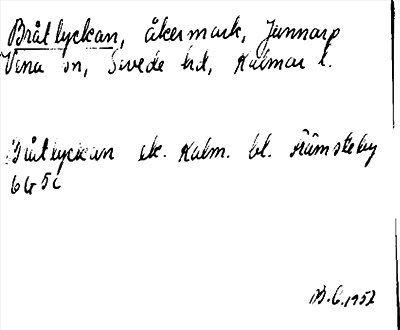 Bråtlyckan, åkermark, Junnarp
Vena sn, Sevede hd, Kalmar l.
Bråtlyckan ek. Kalm. bl. Främsteby
6G5c
B.G.1952